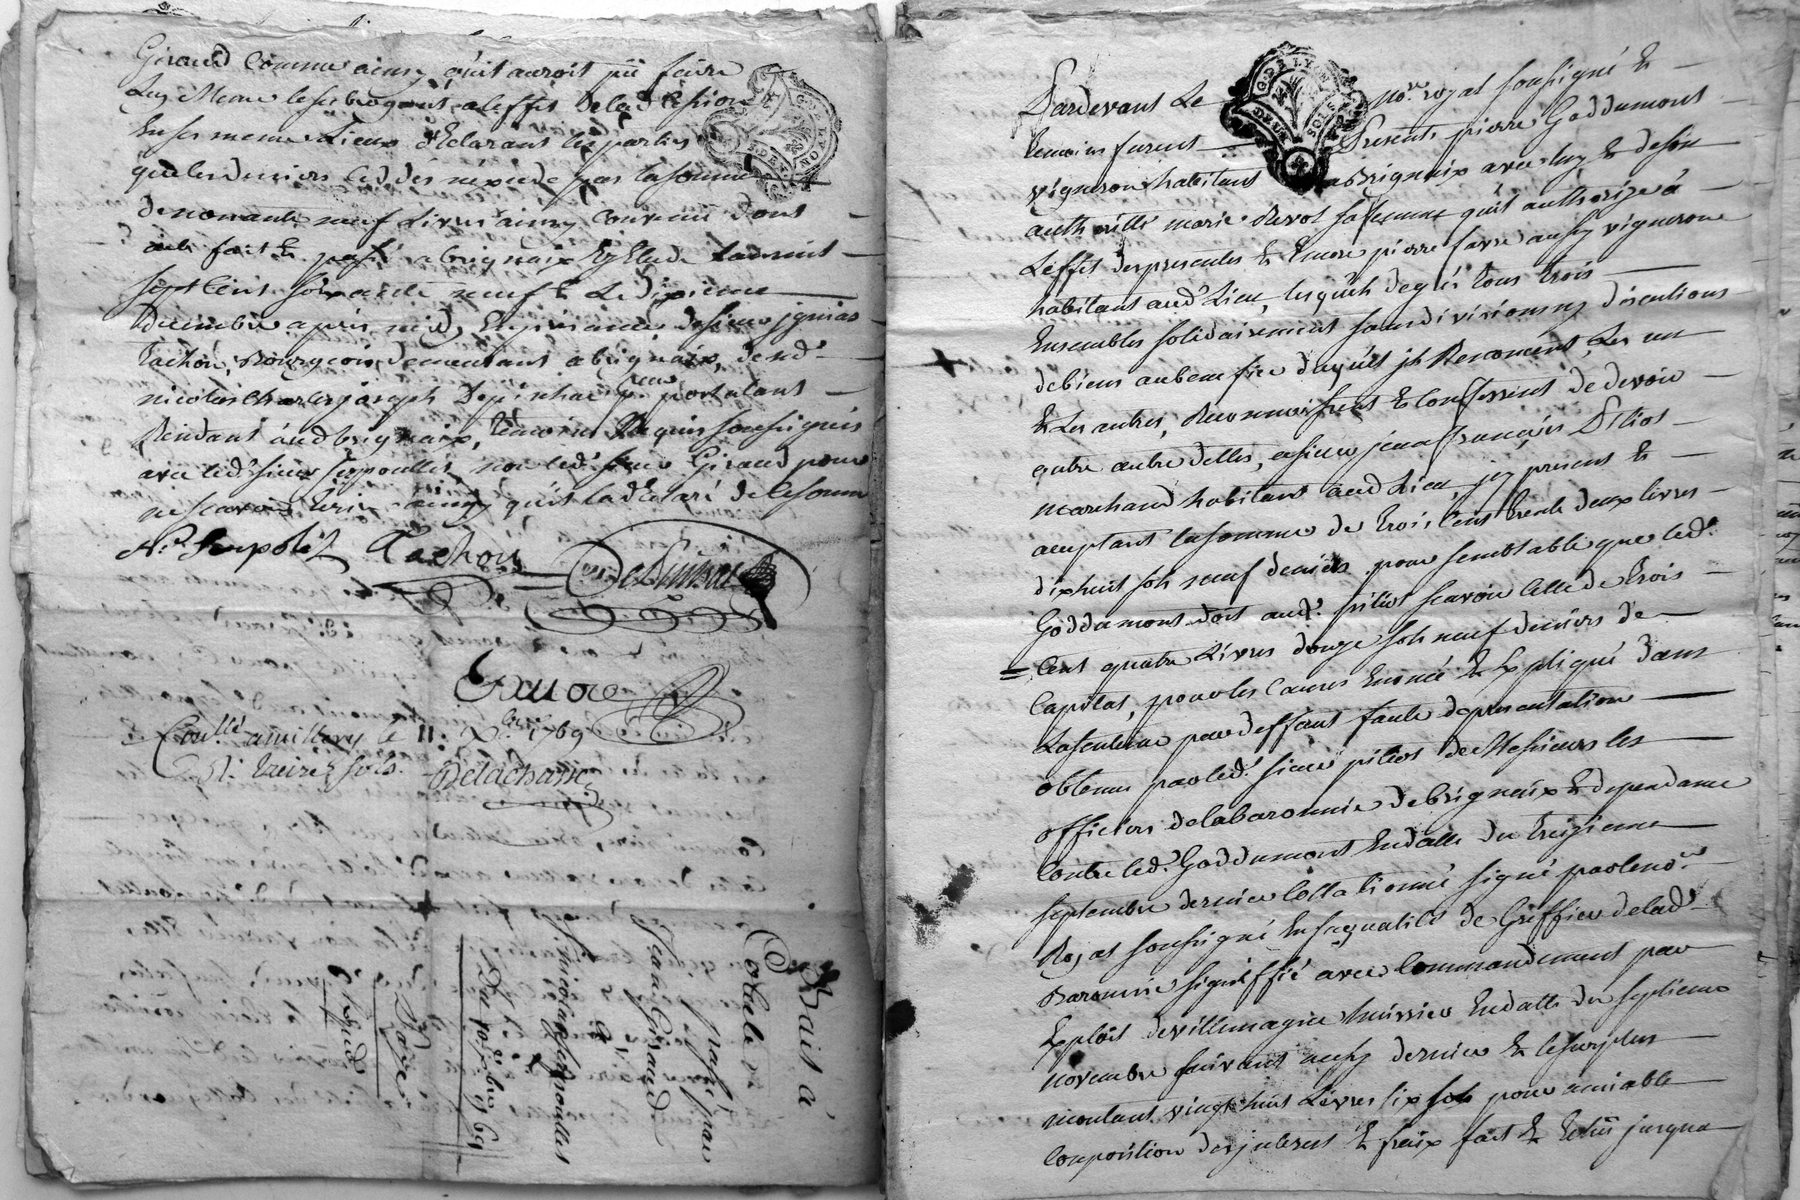 Giraud Comme ainsy quil auroit pü faire
Luy Meme le subrogeant a leffet de lad. Cession
En ses meme Lieux declarant les parties
que les deniers Ceddés n'éxcede pas la somme
de nonante neuf Livres ainsy Convenü dont
acte fait & passé a brignaix Estude Lan mil
sept Cent soixante neuf & Le dixieme
Decembre apres midy En présance de sieur
Tachon, Bourgeois demeurant a brignaix, de
nicolas Charles joseph
Residant aud brignaix, temoins Requis soussignés
avec led. sieur serpoullet non led. sieur Giraud pour
ne scavoir Ecrire ainsy qu'il la déclaré de ce somm
Tachon
Conllé a millery le 11. Xbre 1769
Rt. treize sols. Delachasse
Bail à
Colute
passé par
Jean Giraud
à
nicolas serpoullet
Du 10 Xbre 1769
Payé
Expédié
Pardevant Le nore. royal soussigné &
temoins furent Presents pierre Goddumont
vigneron habitant a Brignaix avec luy & de son
authorité marie Revol sa femme qu'il authorize à
L'effet des presentes & Encore pierre favre aussy vigneron
habitant aud. Lieu, lesquels de gré tous trois
Ensembles solidairement sans division ny discutions
de biens au benefice desquels ils Renoncent, Les un
& Les autres, Reconnoissent & Confessent de devoir
quitte dettes, a sieur jean François Pitiot
marchand habitant aud. Lieu, icy present &
acceptant la somme de trois Cent trente deux livres
dixhuit sols neuf deniers, pour semblable que led.
Goddumont doit aud. pitiot scavoir Celle de trois
Cent quatre Livres douze sols neuf deniers de
Capital, pour les Causes Enoncé & Expliqué dans
La sentence par deffaut faute de presentation
obtenue par led. sieur pitiot de Messieurs les
officiers de la baronnie de brignaix & dependance
Contre led. Goddumont En datte du treizieme
septembre dernier Collationné signé par le nore.
Royal soussigné En sa qualité de Greffier de lad.
Baronnie signiffié avec Commandement par
Exploit de villemagne huissier En datte du septieme
novembre suivant aussy dernier & le surplus
montant vingt huit Livres six sols pour amiable
Composition des interest & fraix fait & Echü jusqua